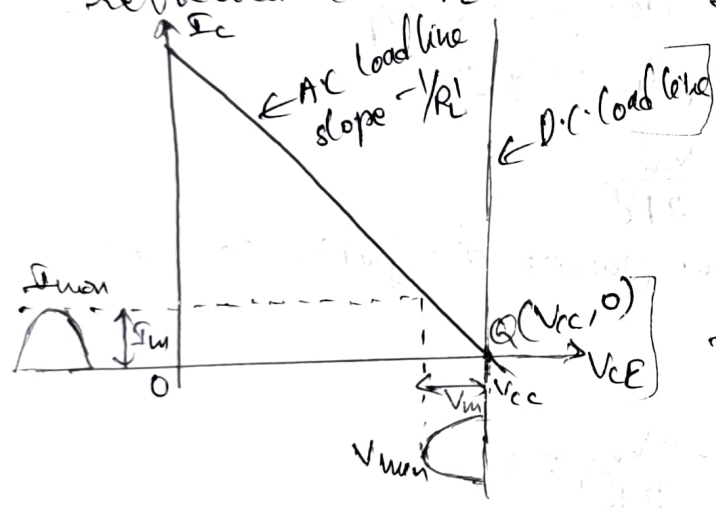 Ic
A.C loadline
slope -1/RL'
D.C. load line
Imax
Im
Q(Vcc, 0)
0
VCE
Vcc
Vm
Vmin